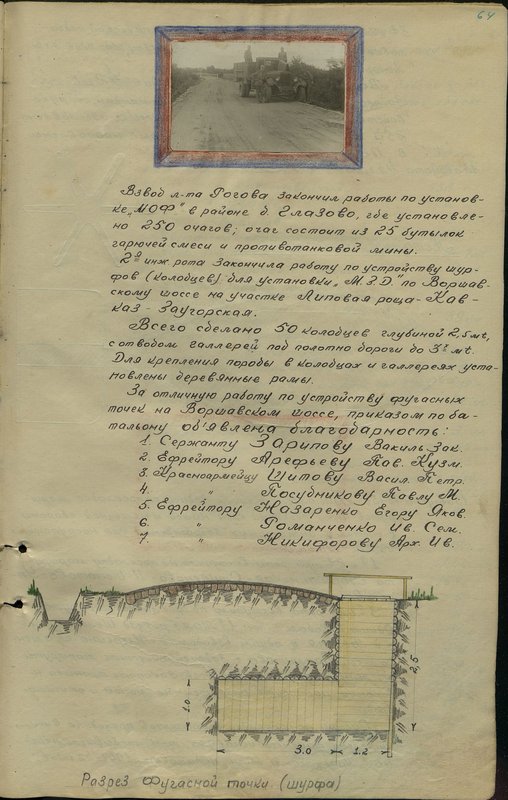 64
Взвод л-та Рогова закончил работы по установ-
ке „МОФ" в районе б. Глазово, где установле-
но 250 очагов; очаг состоит из 25 бутылок
горючей смеси и противотанковой мины.
2ª инж рота закончила работу по устройству шур-
фов (колодцев) для установки „М.З.Д." по Воршав-
скому шоссе на участке Липовая роща-Кав-
каз - Заугорская.
Всего сделано 50 колодцев глубиной 2,5 мt,
с отводом галлерей под полотно дороги до 3х мt.
Для крепления породы в колодцах и галлереях уста-
новлены деревянные рамы.
За отличную работу по устройству фугасных
точек на Воршавском шоссе, приказом по ба-
тальону об'явлена благодарность:
1. Сержанту Зарипову Вакиль Зак.
2. Ефрейтору Арефьеву Пав. Кузм.
3. Красноармейцу Шитову Васил. Петр.
4. " Посудникову Павлу М.
5. Ефрейтору Назаренко Егору Яков.
6. " Романченко Ив. Сем.
7. " Никифорову Арх. Ив.
2,5
1.0
3.0 1.2
Разрез Фугасной точки (шурфа)